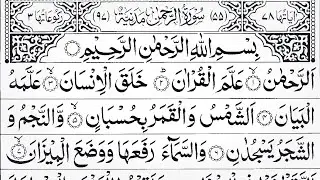 اٰیَاتُهَا ٧٨ (٥٥) سُوْرَةُ الرَّحْمٰنِ مَدَنِیَّةٌ (٩٧) رُكُوْعَاتُهَا ٣
بِسْمِ اللهِ الرَّحْمٰنِ الرَّحِیْمِ
اَلرَّحْمٰنُ ١ عَلَّمَ الْقُرْاٰنَ ٢ خَلَقَ الْاِنْسَانَ ٣ عَلَّمَهُ
الْبَیَانَ ٤ اَلشَّمْسُ وَ الْقَمَرُ بِحُسْبَانٍ ٥ وَّ النَّجْمُ وَ
الشَّجَرُ یَسْجُدٰنِ ٦ وَ السَّمَآءَ رَفَعَهَا وَ وَضَعَ الْمِیْزَانَ ٧